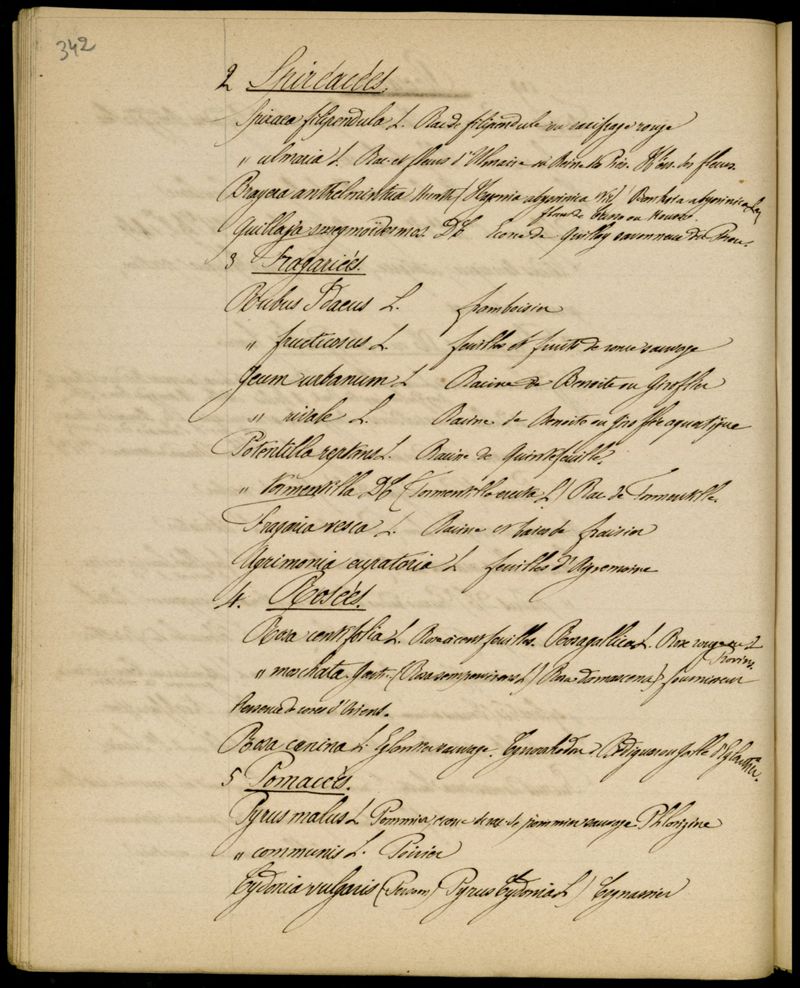 342
2 Spiréacées.
Spiraea filipendula L. Rac de filipendule ou saxifrage rouge
" ulmaria L. Rac et fleurs d'Ulmaire ou Reine des Prés. H. ess. des fleurs.
Brayera anthelmintica Kunth (Hagenia abyssinica Wil) Bankesia abyssinica
fleurs de Cusso ou Kousso.
Quillaja smegmadermos. DC Ecorce de Quillay savonneux du Pérou.
3 Fragariées.
Rubus Idaeus L. framboisier
" fructicosus L. feuilles et fruits de ronce sauvage
Geum urbanum L Racine de Benoite ou Giroflée
" rivale L. Racine de Benoite ou Giroflée aquatique
Potentilla reptans L. Racine de Quintefeuille.
" tormentilla DC (Tormentilla erecta L) Rac de Tormentille.
Fragaria vesca L. Racine et baies de fraisier
Agrimonia eupatoria L feuilles d'Agremoine
4. Rosées.
Rosa centifolia L. Rose à cent feuilles. Rosa gallica L. Rose rouge ou de
Provins.
" moschata (Rosa sempervirens L) Rosa damascena) fournissent
l'essence de roses d'Orient.
Rosa canina L. Eglantier sauvage. Cynorrhodon Bédéguar ou Galle d'Eglantier.
5 Pomacées.
Pyrus malus L Pommier, écorce de rac de pommier sauvage. Phlorizine
" communis L. Poirier
Cydonia vulgaris (Persoon) Pyrus Cydonia L) Cognassier